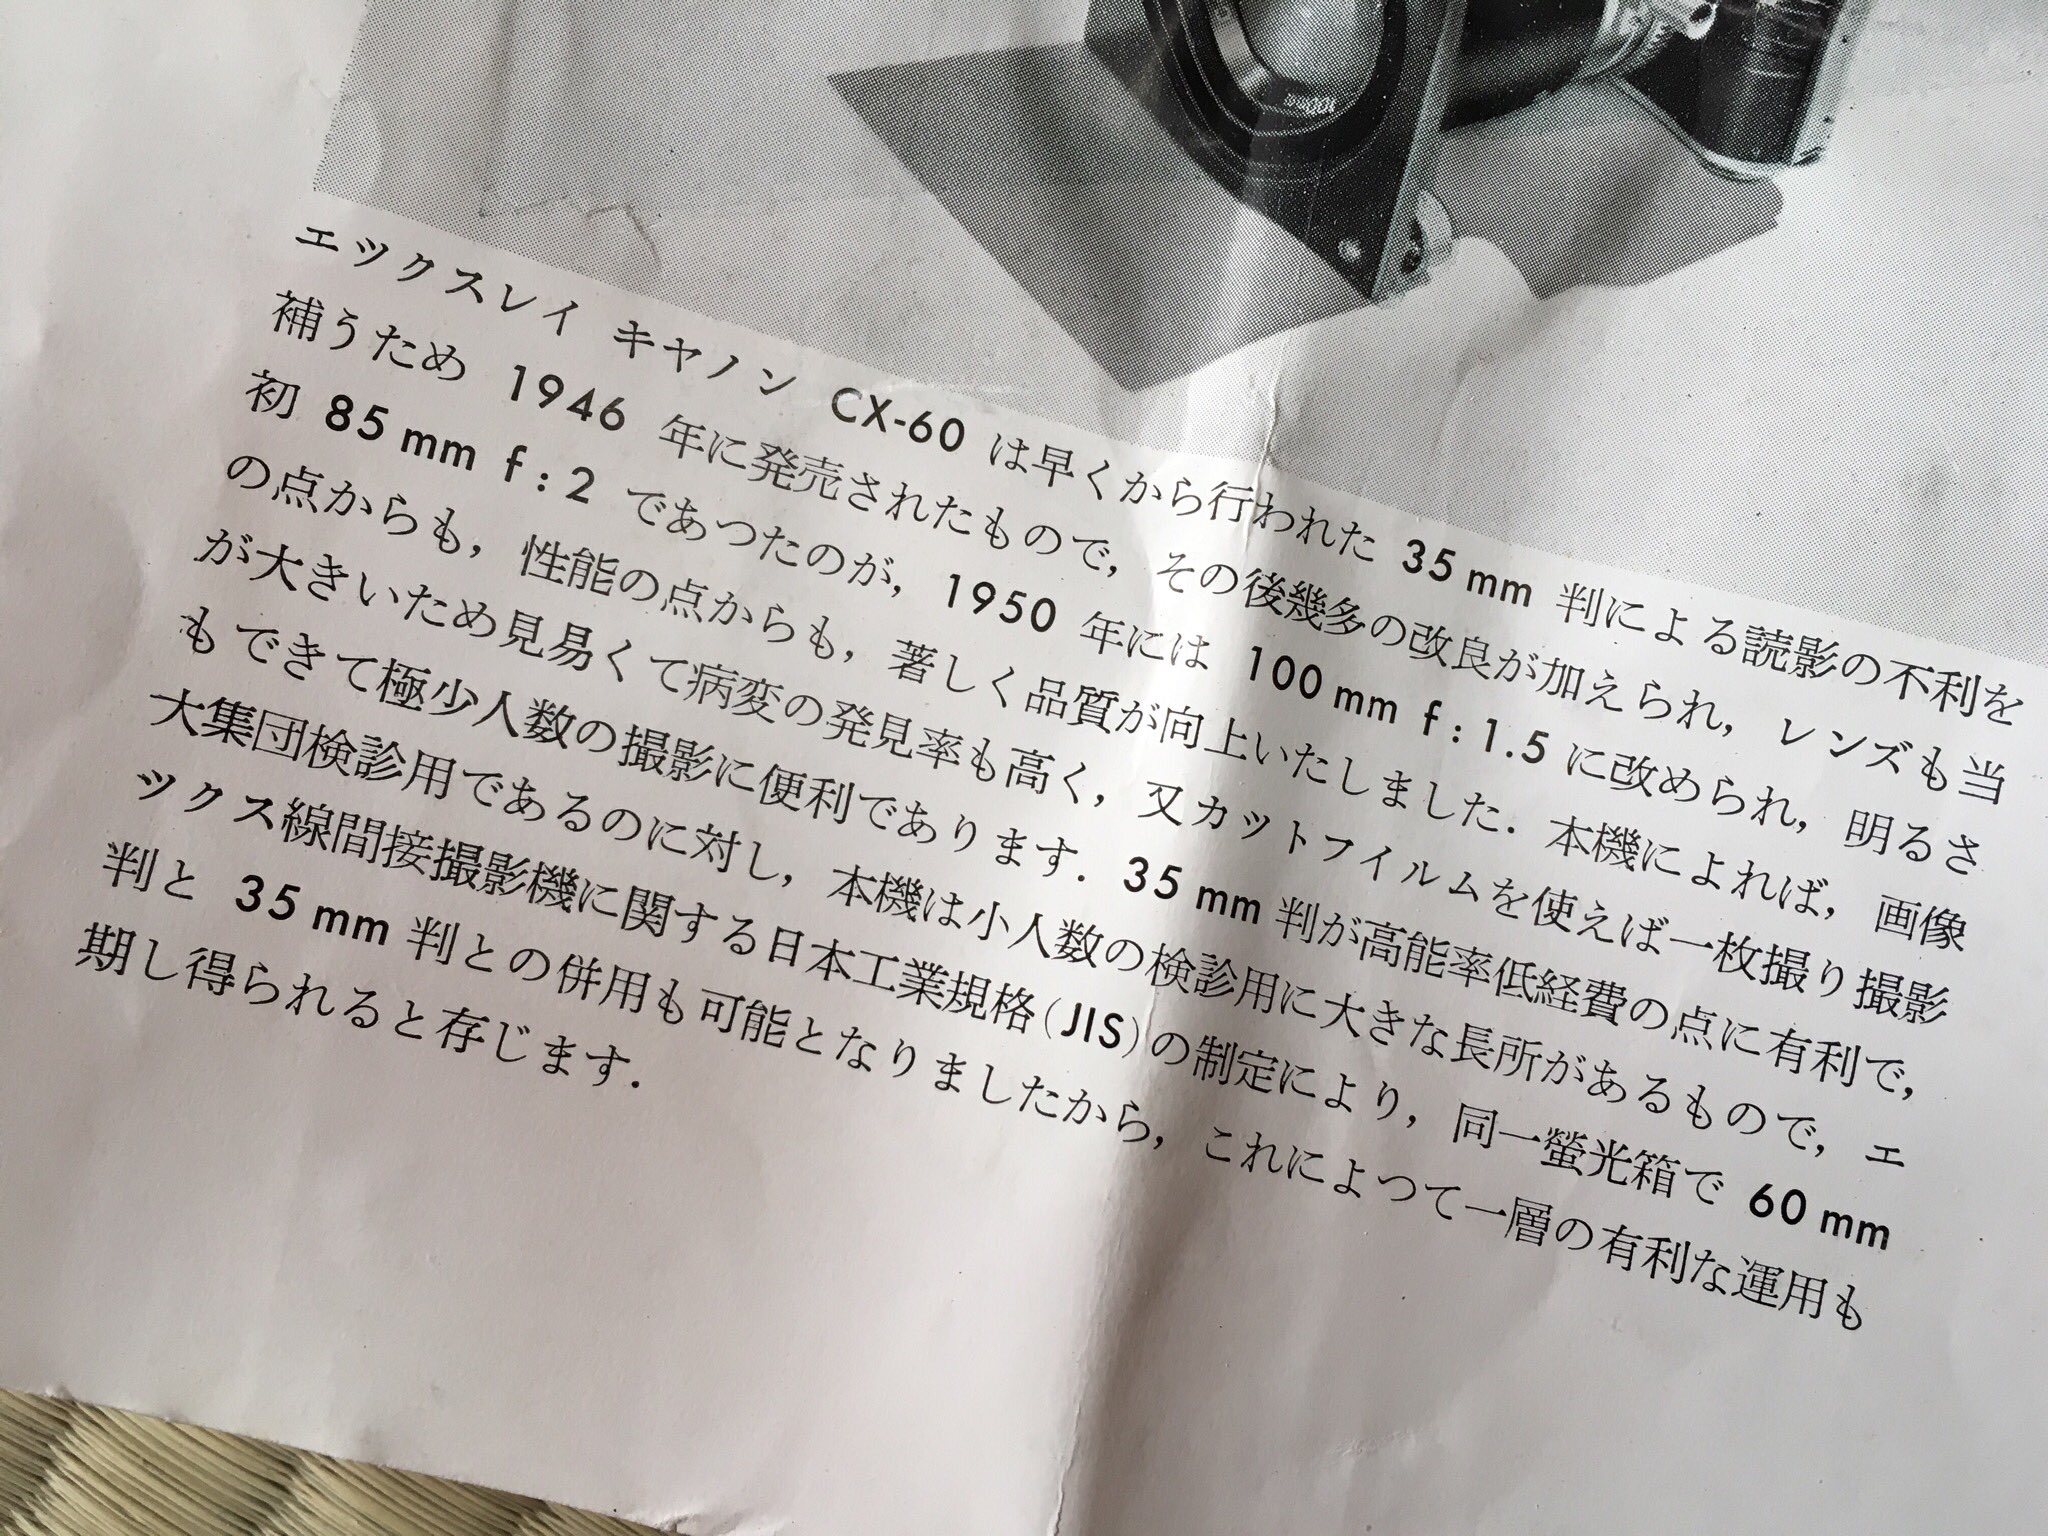 100mm
エックスレイ キヤノン CX-60 は早くから行われた 35mm 判による読影の不利を
補うため 1946 年に発売されたもので，その後幾多の改良が加えられ，レンズも当
初 85mm f:2 であつたのが，1950 年には 100mm f:1.5 に改められ，明るさ
の点からも，性能の点からも，著しく品質が向上いたしました．本機によれば，画像
が大きいため見易くて病変の発見率も高く，又カットフイルムを使えば一枚撮り撮影
もできて極少人数の撮影に便利であります．35mm 判が高能率低経費の点に有利で，
大集団検診用であるのに対し，本機は小人数の検診用に大きな長所があるもので，エ
ックス線間接撮影機に関する日本工業規格(JIS)の制定により，同一螢光箱で 60mm
判と 35mm 判との併用も可能となりましたから，これによつて一層の有利な運用も
期し得られると存じます．